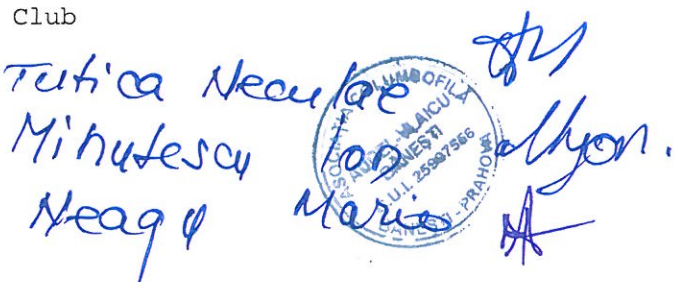 Club
Tutica Neculae
Minutescu Ion
Neagu Mario
ASOCIATIA COLUMBOFILA
AUREL VLAICU
BANESTI
C.U.I. 25997566
BANESTI - PRAHOVA